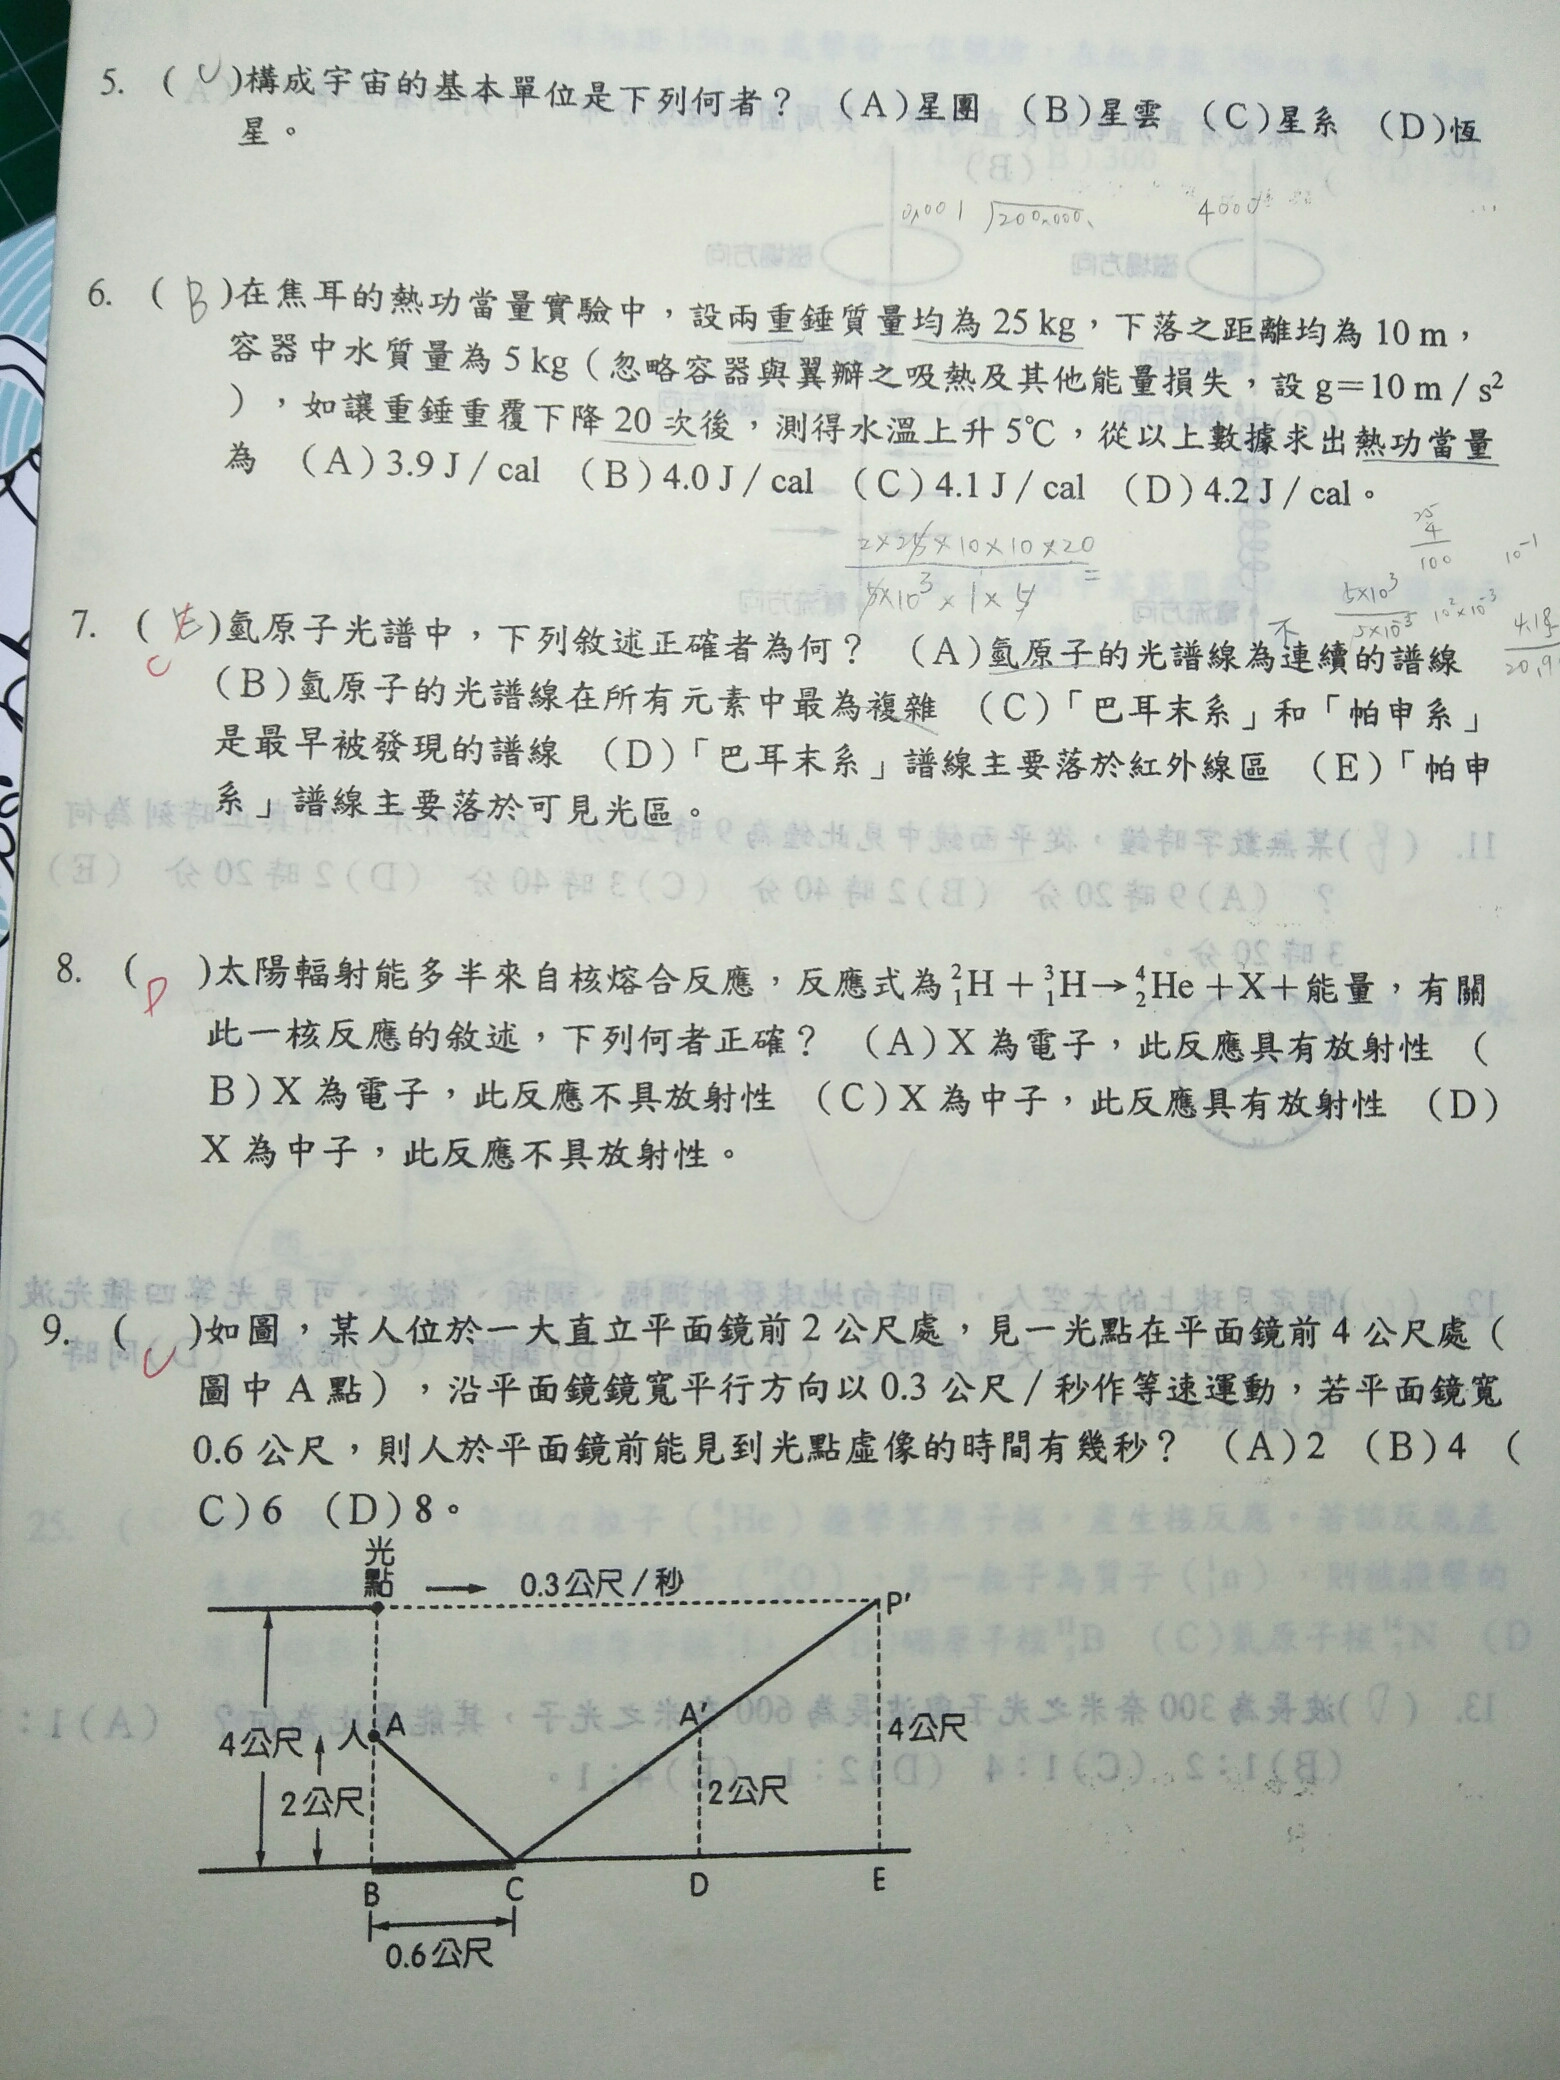 5. ( C )構成宇宙的基本單位是下列何者？ (A)星團 (B)星雲 (C)星系 (D)恆
星。
0.001 200,000 4000
6. ( B )在焦耳的熱功當量實驗中，設兩重錘質量均為 25 kg，下落之距離均為 10 m，
容器中水質量為 5 kg（忽略容器與翼瓣之吸熱及其他能量損失，設 g＝10 m / s²
），如讓重錘重覆下降 20 次後，測得水溫上升 5℃，從以上數據求出熱功當量
為 (A) 3.9 J / cal (B) 4.0 J / cal (C) 4.1 J / cal (D) 4.2 J / cal。
2×25×10×10×20
5×10³×1×5 =
25
4
100
10⁻¹
5×10³
5×10⁻³ 10²×10⁻³
不
7. ( E )氫原子光譜中，下列敘述正確者為何？ (A)氫原子的光譜線為連續的譜線
C
(B)氫原子的光譜線在所有元素中最為複雜 (C)「巴耳末系」和「帕申系」
是最早被發現的譜線 (D)「巴耳末系」譜線主要落於紅外線區 (E)「帕申
系」譜線主要落於可見光區。
8. ( D )太陽輻射能多半來自核熔合反應，反應式為 ²₁H + ³₁H→⁴₂He + X + 能量，有關
此一核反應的敘述，下列何者正確？ (A) X 為電子，此反應具有放射性 (
B) X 為電子，此反應不具放射性 (C) X 為中子，此反應具有放射性 (D)
X 為中子，此反應不具放射性。
9. ( C )如圖，某人位於一大直立平面鏡前 2 公尺處，見一光點在平面鏡前 4 公尺處（
圖中 A 點），沿平面鏡鏡寬平行方向以 0.3 公尺 / 秒作等速運動，若平面鏡寬
0.6 公尺，則人於平面鏡前能見到光點虛像的時間有幾秒？ (A) 2 (B) 4 (
C) 6 (D) 8。
光點 0.3公尺/秒 P'
4公尺 人 A A' 4公尺
2公尺 2公尺
B C D E
0.6公尺